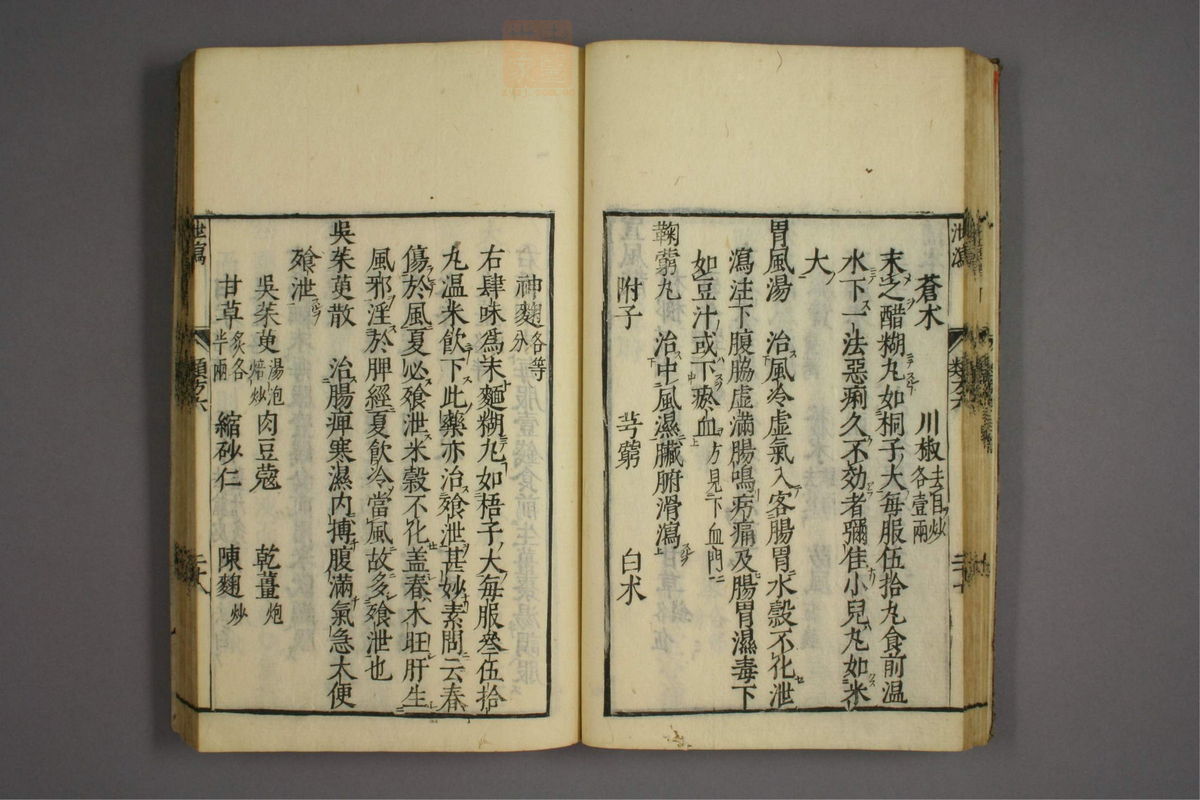 蒼朮　川椒去目炒各壹兩
末之醋糊丸如桐子大每服伍拾丸食前溫
水下一法惡痢久不効者彌佳小兒丸如米
大
胃風湯　治風冷虛氣入客腸胃水穀不化泄
瀉注下腹脇虛滿腸鳴㽲痛及腸胃濕毒下
如豆汁或下瘀血方見下血門
鞠藭丸　治中風濕臟腑滑瀉
附子　芎藭　白朮
泄瀉　類方六
神麴各等分
右肆味爲末麵糊丸如梧子大每服叄伍拾
丸温米飮下此藥亦治飱泄甚妙素問云春
傷於風夏必飱泄米穀不化盖春木旺肝生
風邪淫於脾經夏飮冷當風故多飱泄也
吳茱萸散　治腸痺寒濕內搏腹滿氣急大便
飱泄
吳茱萸湯泡焙炒　肉豆蔻　乾薑炮
甘草炙各半兩　縮砂仁　陳麴炒
泄瀉　類方六　二十八